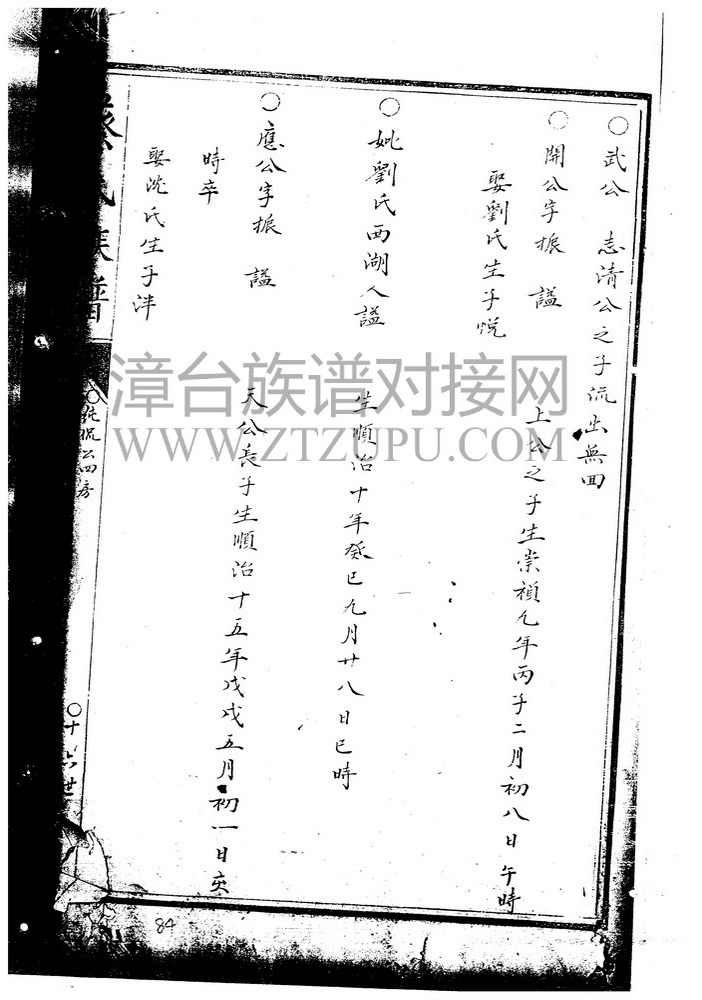 ○武公 志清公之子流出無回
○開公字振 諡 上公之子生崇禎九年丙子二月初八日午時
娶劉氏生子悦
○妣劉氏西湖人諡 生順治十年癸巳九月廿八日巳時
○應公字振 諡 天公長子生順治十五年戊戌五月初一日
時卒
娶沈氏生子泮
氏族譜
○純 公四房
○十六世
漳台族谱对接网
WWW.ZTZUPU.COM
84